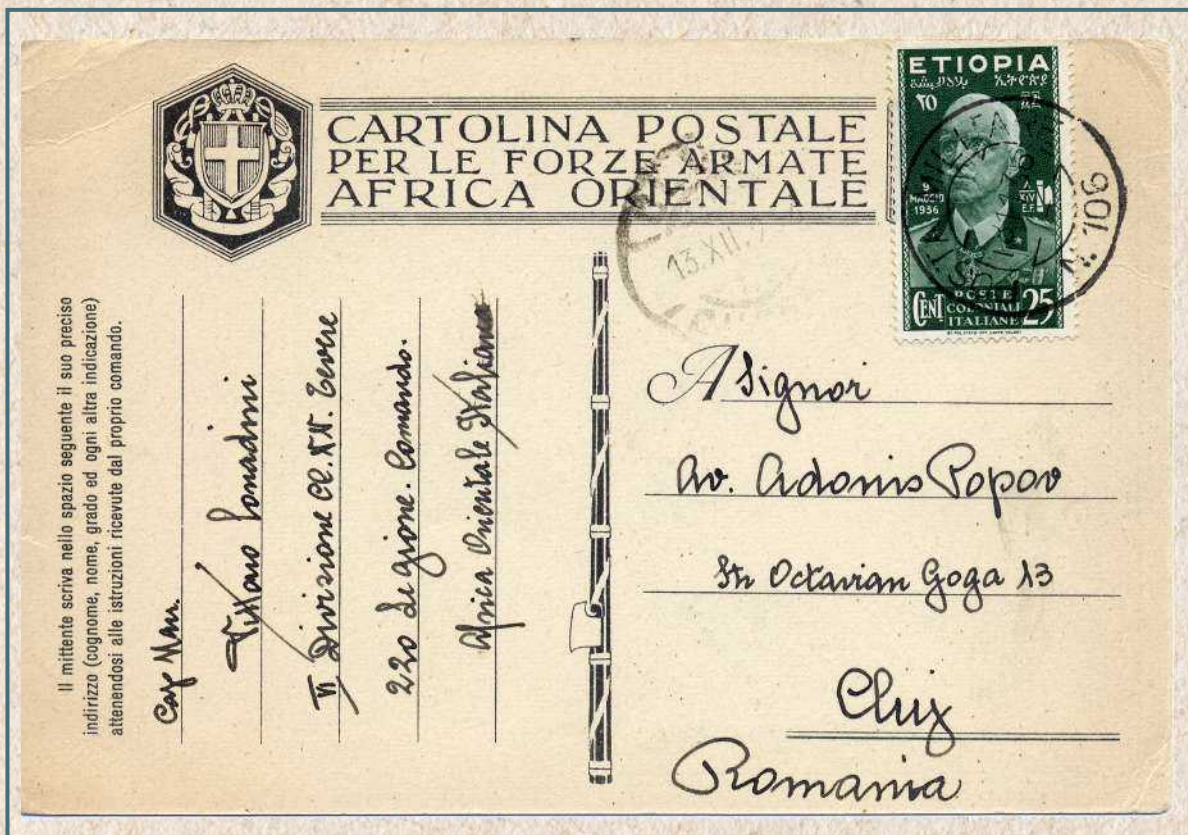 CARTOLINA POSTALE
PER LE FORZE ARMATE
AFRICA ORIENTALE
ETIOPIA
ኢትዮጵያ
٢٥
9
MAGGIO
1936
A
XIV
E.F.
CENT
POSTE
COLONIALI
ITALIANE
25
POSTA MILITARE
N. 106
13.XII.
Il mittente scriva nello spazio seguente il suo preciso
indirizzo (cognome, nome, grado ed ogni altra indicazione)
attenendosi alle istruzioni ricevute dal proprio comando.
Cap Man.
Vittorio
VI Divisione CC.NN. Tevere
220 Legione. Comando.
Africa Orientale Italiana
A Signor
Av. Adonis Popov
Str Octavian Goga 13
Cluj
Romania